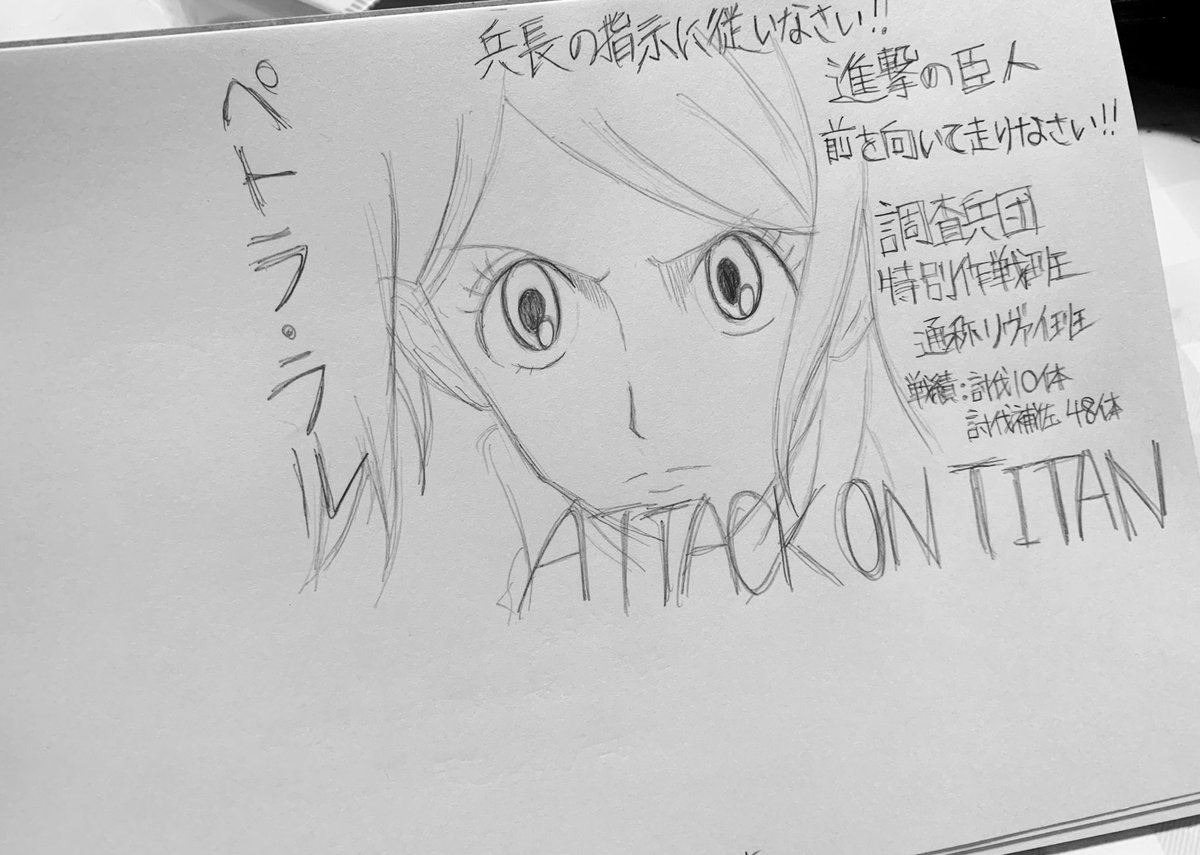 兵長の指示に従いなさい!!
進撃の臣人
前を向いて走りなさい!!
調査兵団
特別作戦班
通称リヴァイ班
戦績:討伐10体
討伐補佐48体
ペトラ・ラル
ATTACK ON TITAN